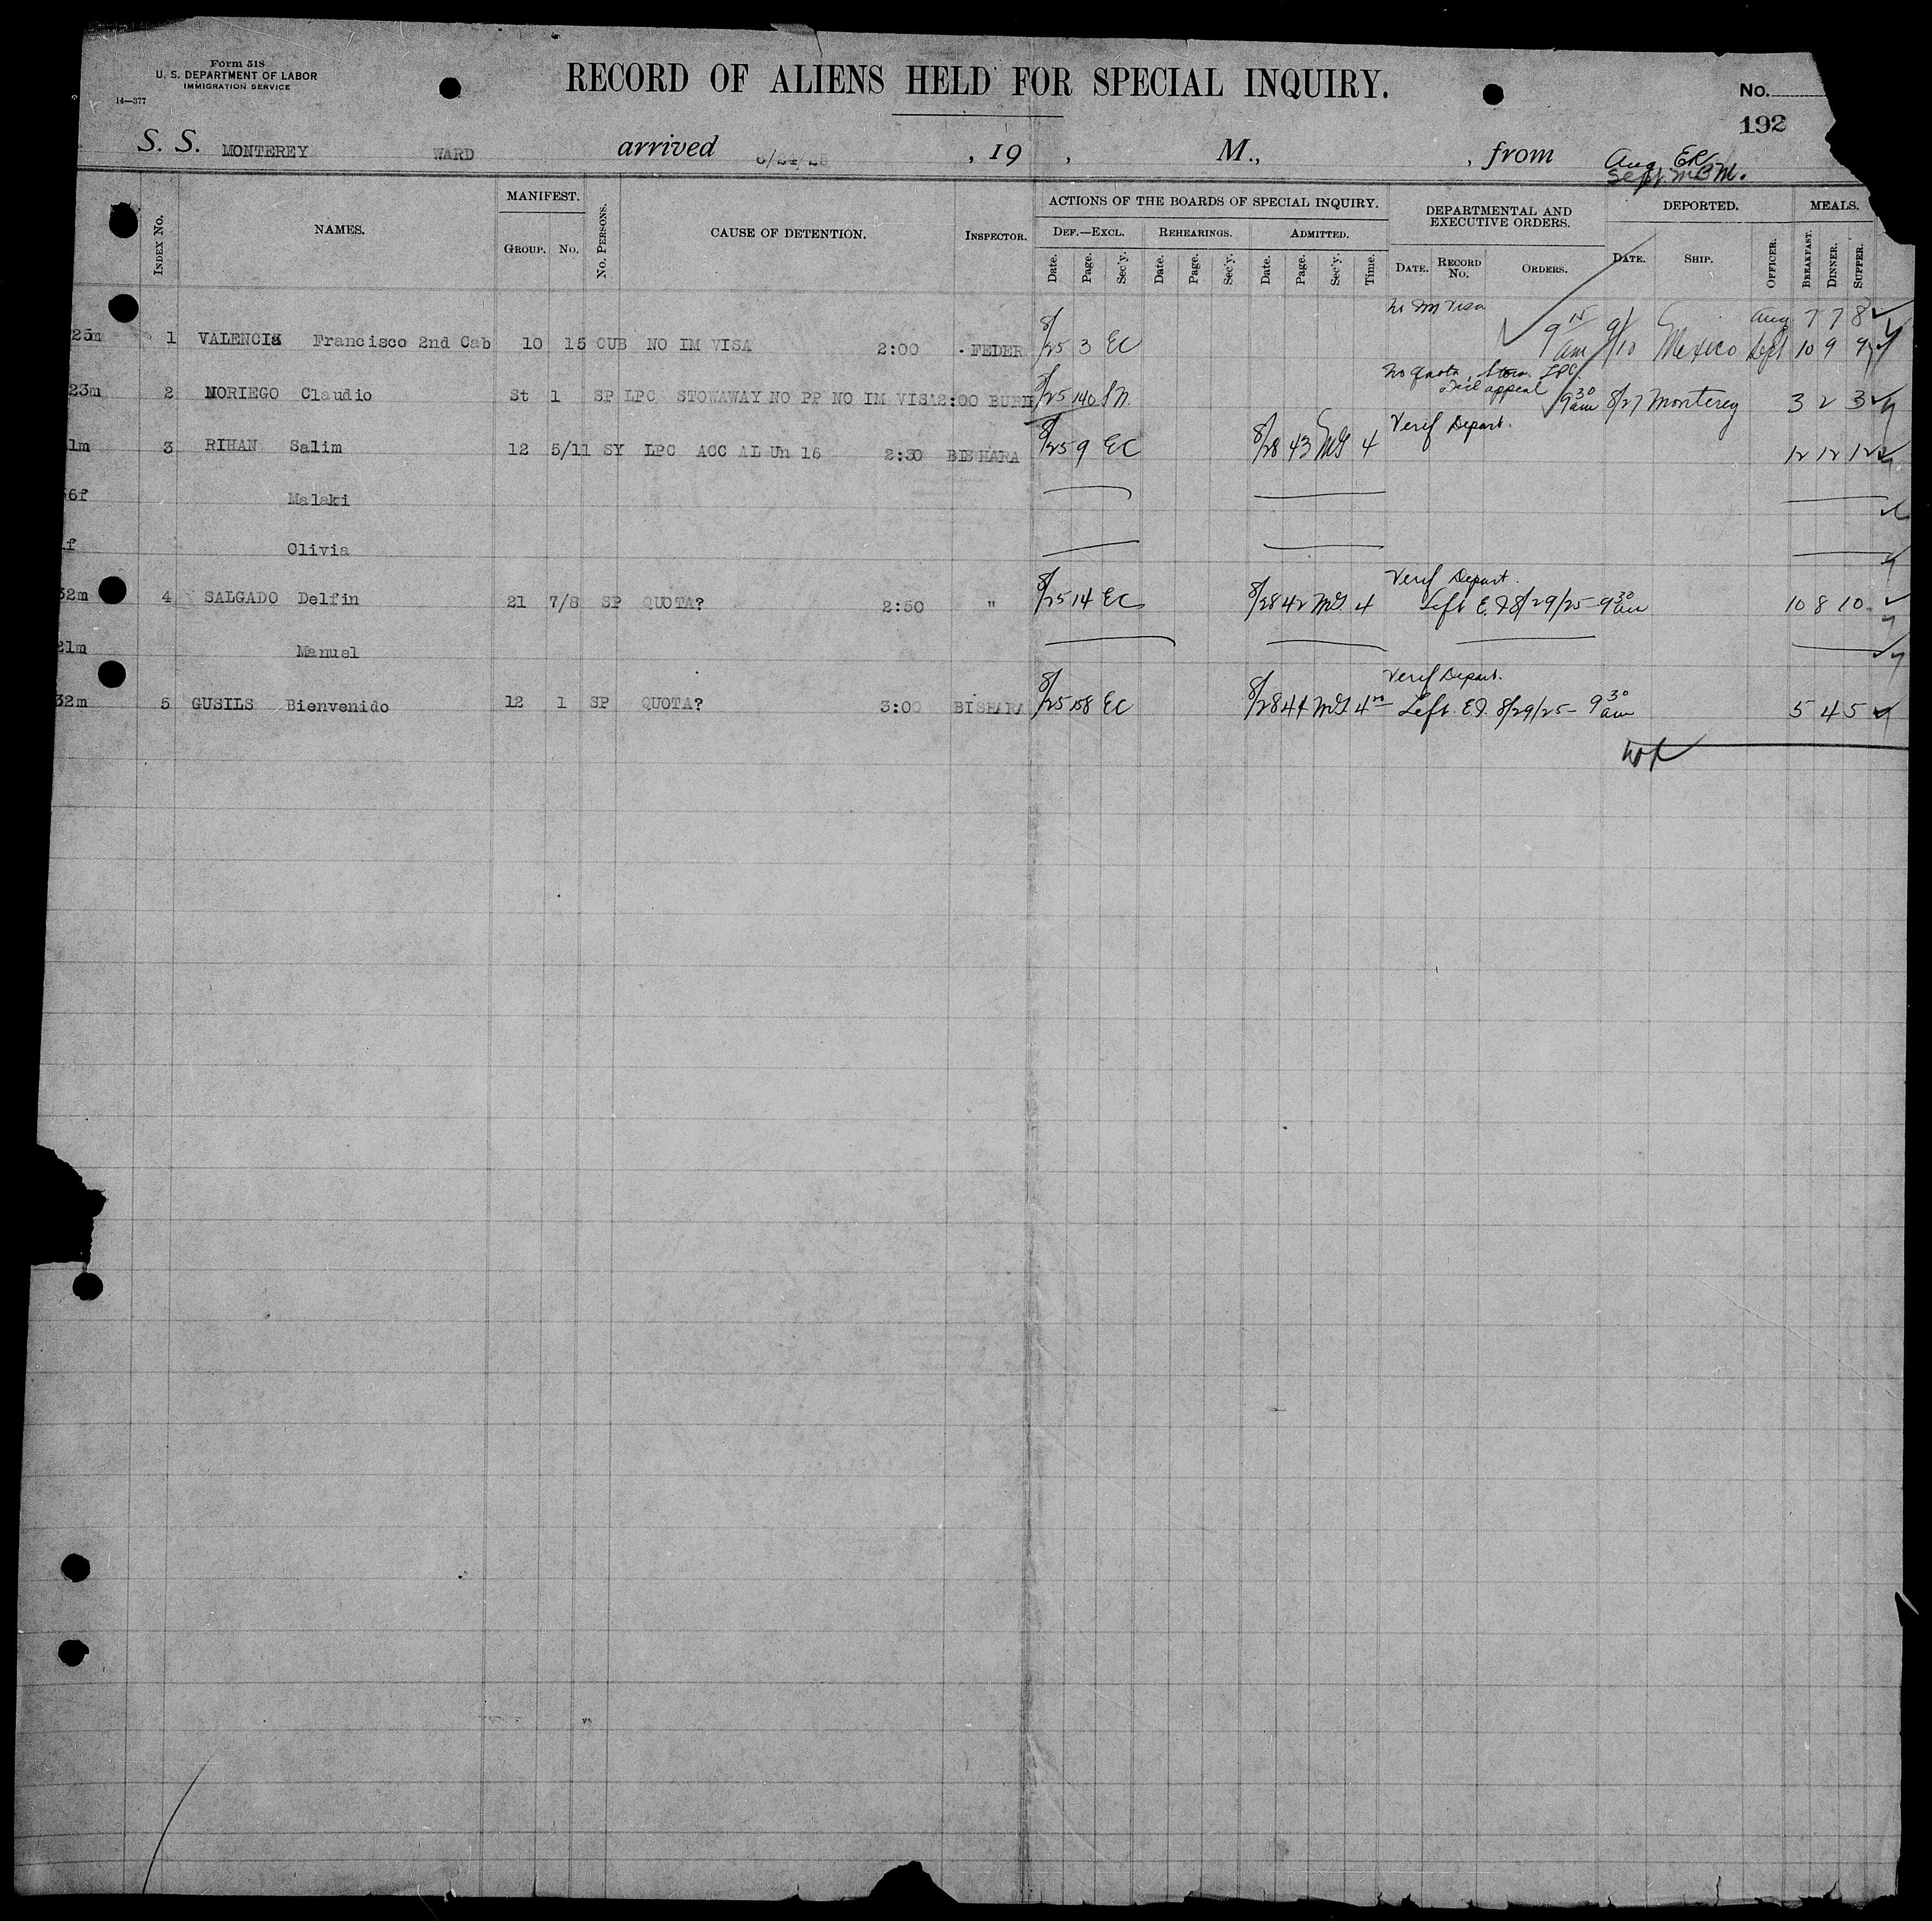 Form 518
U. S. DEPARTMENT OF LABOR
IMMIGRATION SERVICE
14—377
RECORD OF ALIENS HELD FOR SPECIAL INQUIRY.
No.
192
S. S. MONTEREY WARD arrived , 19 , M., , from
Aug. ER
Sept.
INDEX No. NAMES. MANIFEST. GROUP. No. No. PERSONS. CAUSE OF DETENTION. INSPECTOR.
ACTIONS OF THE BOARDS OF SPECIAL INQUIRY. DEPARTMENTAL AND EXECUTIVE ORDERS. DEPORTED. MEALS.
DEF.—EXCL. REHEARINGS. ADMITTED.
Date. Page. Sec'y. Date. Page. Sec'y. Date. Page. Sec'y. Time. DATE. RECORD No. ORDERS. DATE. SHIP. OFFICER. BREAKFAST. DINNER. SUPPER.
no im visa Aug 7 7 8
25m 1 VALENCIA Francisco 2nd Cab 10 15 CUB NO IM VISA 2:00 FEDER 8/25 3 EC 9 15 am 9/10 Mexico Sept 10 9 9
no quota, Stow. LPC
appeal
23m 2 NORIEGO Claudio St 1 SP LPC STOWAWAY NO PP NO IM VISA 2:00 8/25 140 9 30 am 8/27 Monterey 3 2 3
Verif Depart.
1m 3 RIHAN Salim 12 5/11 SY LPC ACC AL Un 16 2:30 BISHARA 8/25 9 EC 8/28 43 MG 4 12 12 12
6f Malaki
f Olivia
Verif Depart.
32m 4 SALGADO Delfin 21 7/8 SP QUOTA? 2:50 " 8/25 14 EC 8/28 42 MG 4 Left E.I. 8/29/25 - 9 30 am 10 8 10
21m Manuel
Verif Depart.
32m 5 GUSILS Bienvenido 12 1 SP QUOTA? 3:00 BISHARA 8/25 158 EC 8/28 44 MG 4 Left E.I. 8/29/25 - 9 30 am 5 4 5